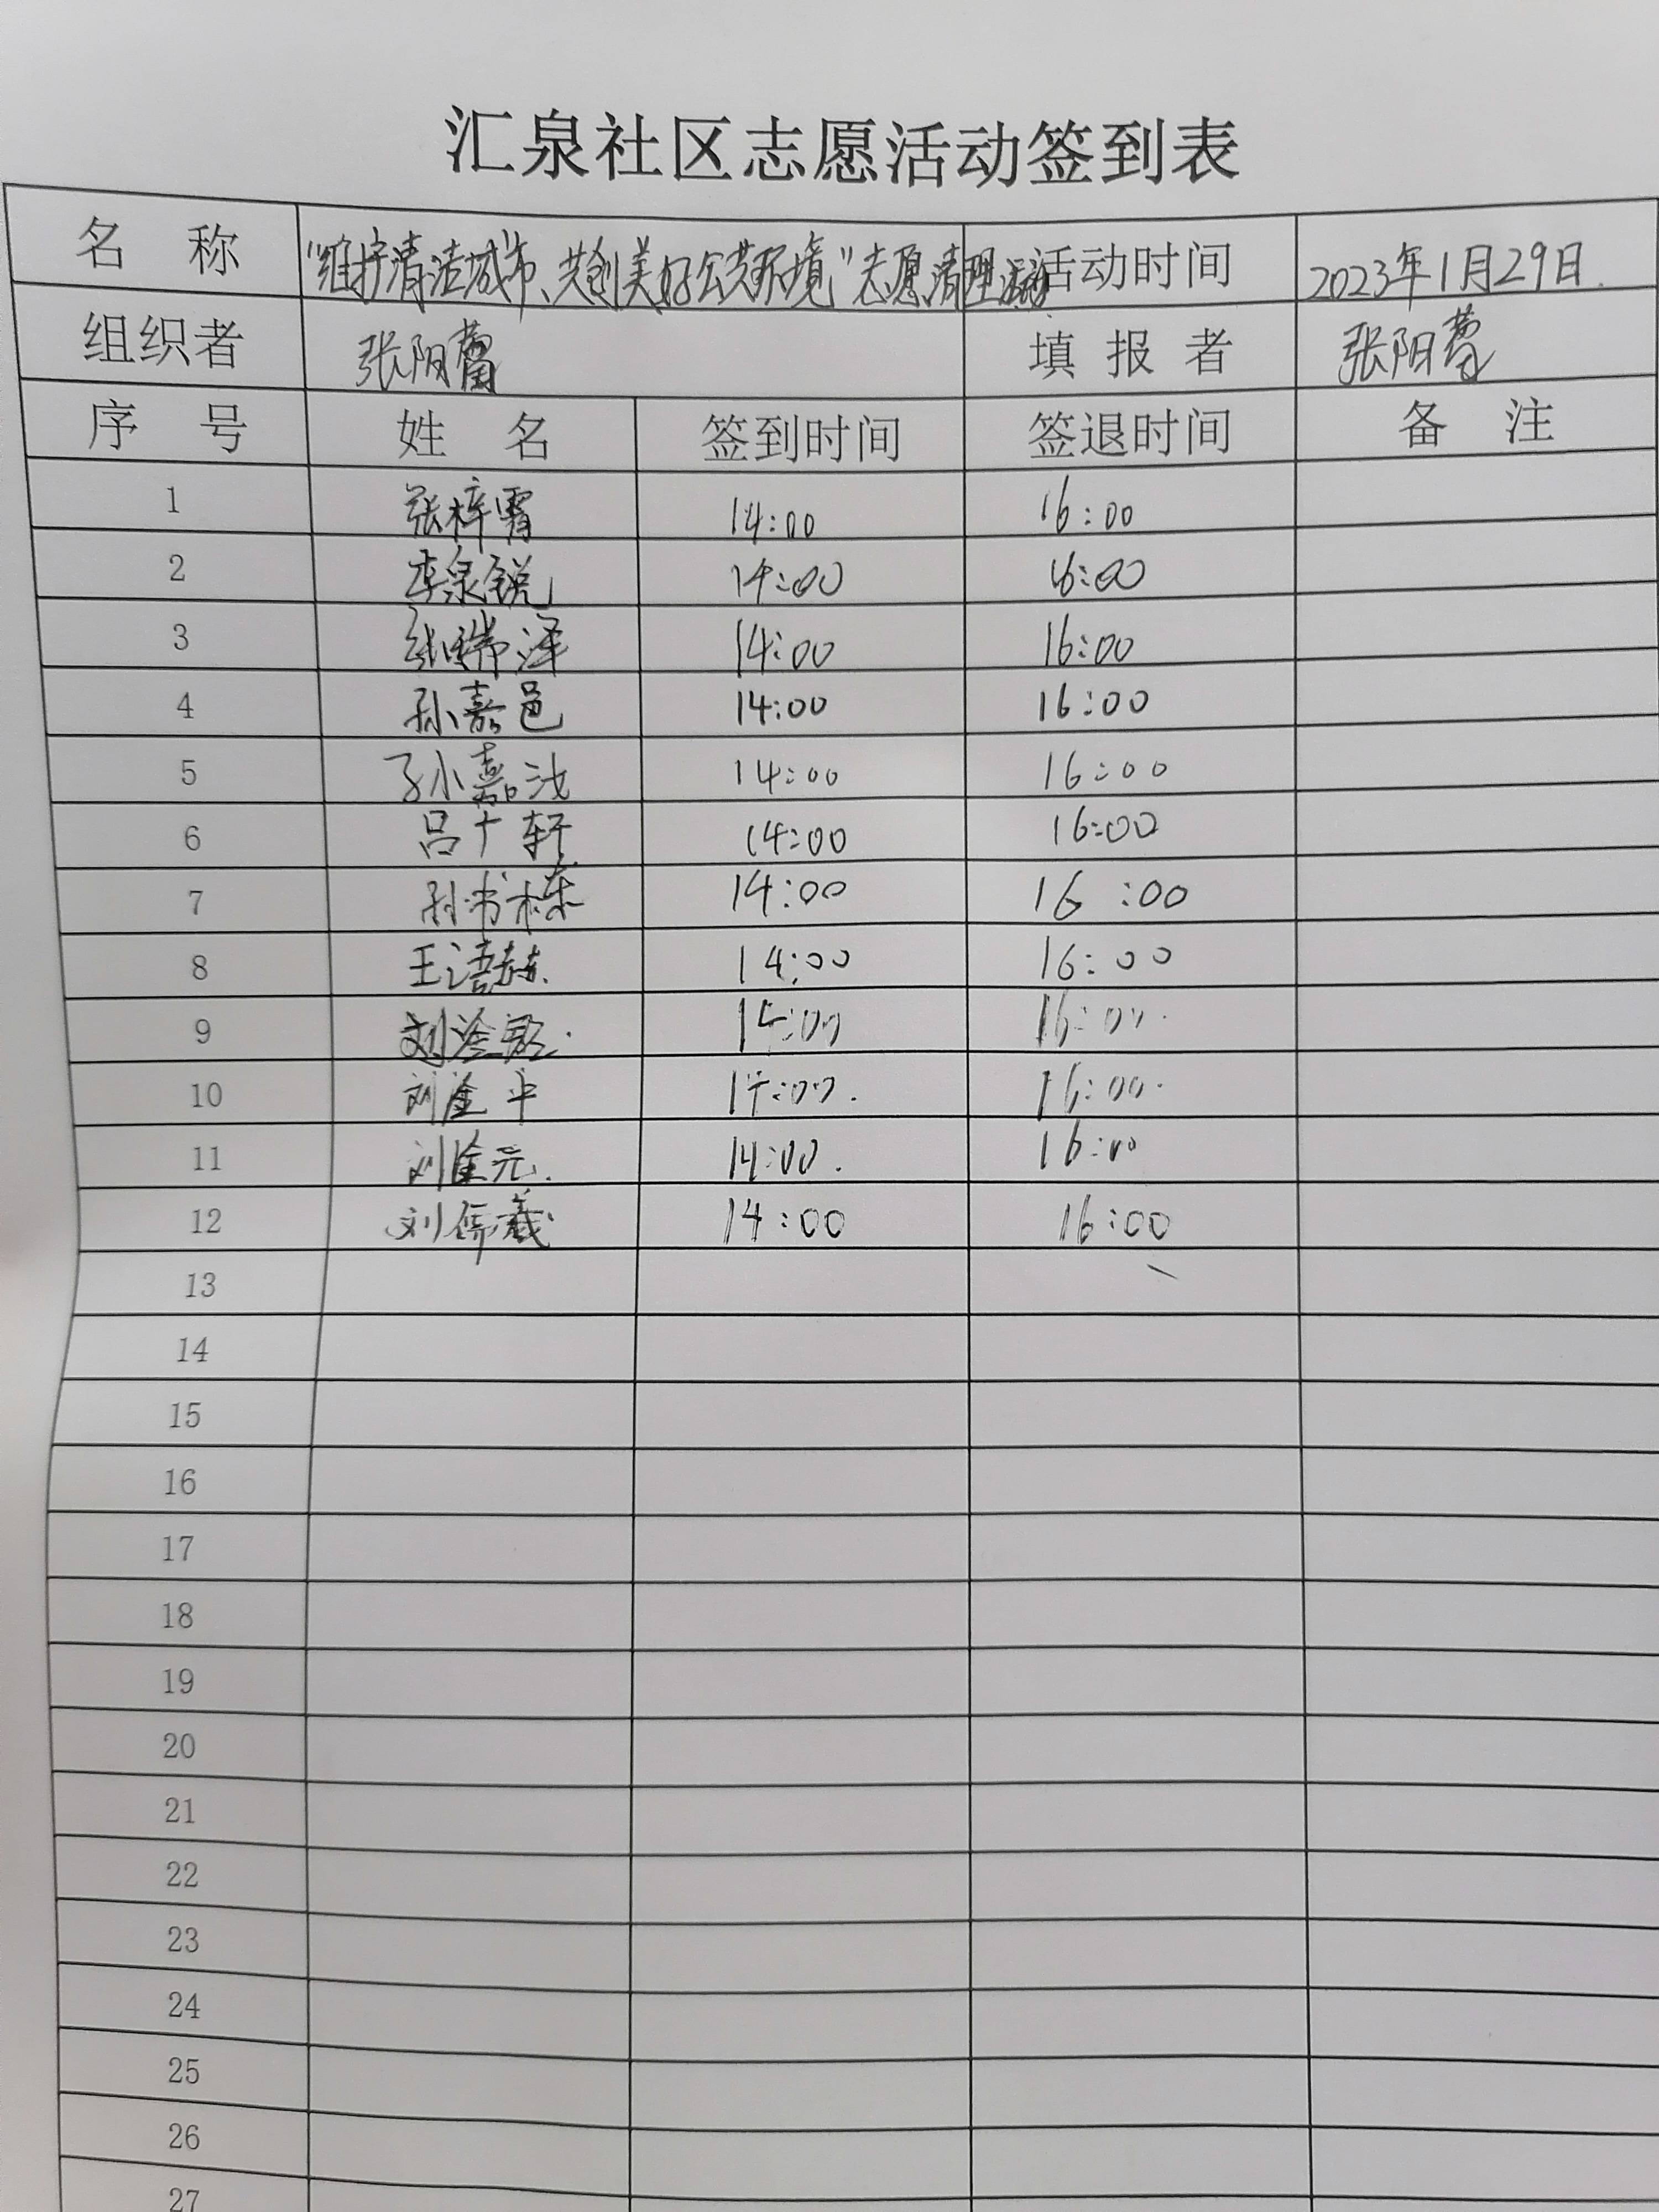 汇泉社区志愿活动签到表
名 称 "维护清洁城市、共创美好公共环境"志愿清理活动 活动时间 2023年1月29日.
组织者 张阳 填报者 张阳
序 号 姓 名 签到时间 签退时间 备 注
1 张梓霄 14:00 16:00
2 李泉锐 14:00 16:00
3 张瑞泽 14:00 16:00
4 孙嘉邑 14:00 16:00
5 孙嘉 14:00 16:00
6 吕 轩 14:00 16:00
7 孙书栋 14:00 16:00
8 王语赫 14:00 16:00
9 刘 14:00 16:00
10 刘 平 14:00 16:00
11 刘 元 14:00 16:00
12 刘儒羲 14:00 16:00
13
14
15
16
17
18
19
20
21
22
23
24
25
26
27